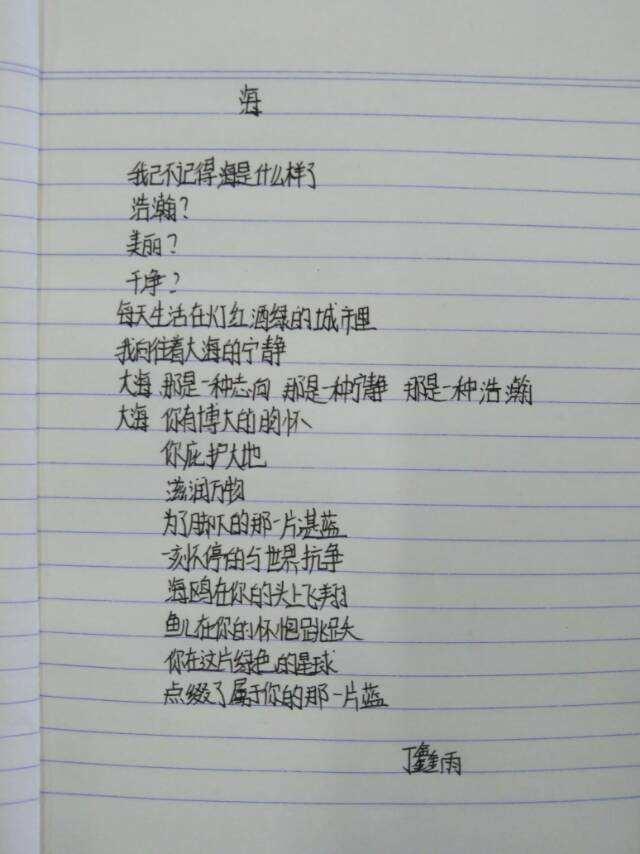 海
我已不记得海是什么样了
浩瀚？
美丽？
干净？
每天生活在灯红酒绿的城市里
我向往着大海的宁静
大海 那是一种志向 那是一种宁静 那是一种浩瀚
大海 你有博大的胸怀
你庇护大地
滋润万物
为了脚下的那一片湛蓝
一刻不停的与世界抗争
海鸥在你的头上飞翔
鱼儿在你的怀抱跳跃
你在这片绿色的星球
点缀了属于你的那一片蓝
丁鑫雨